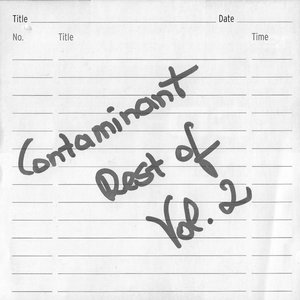 Title Date
No. Title Time
Contaminant
Rest of
Vol. 2